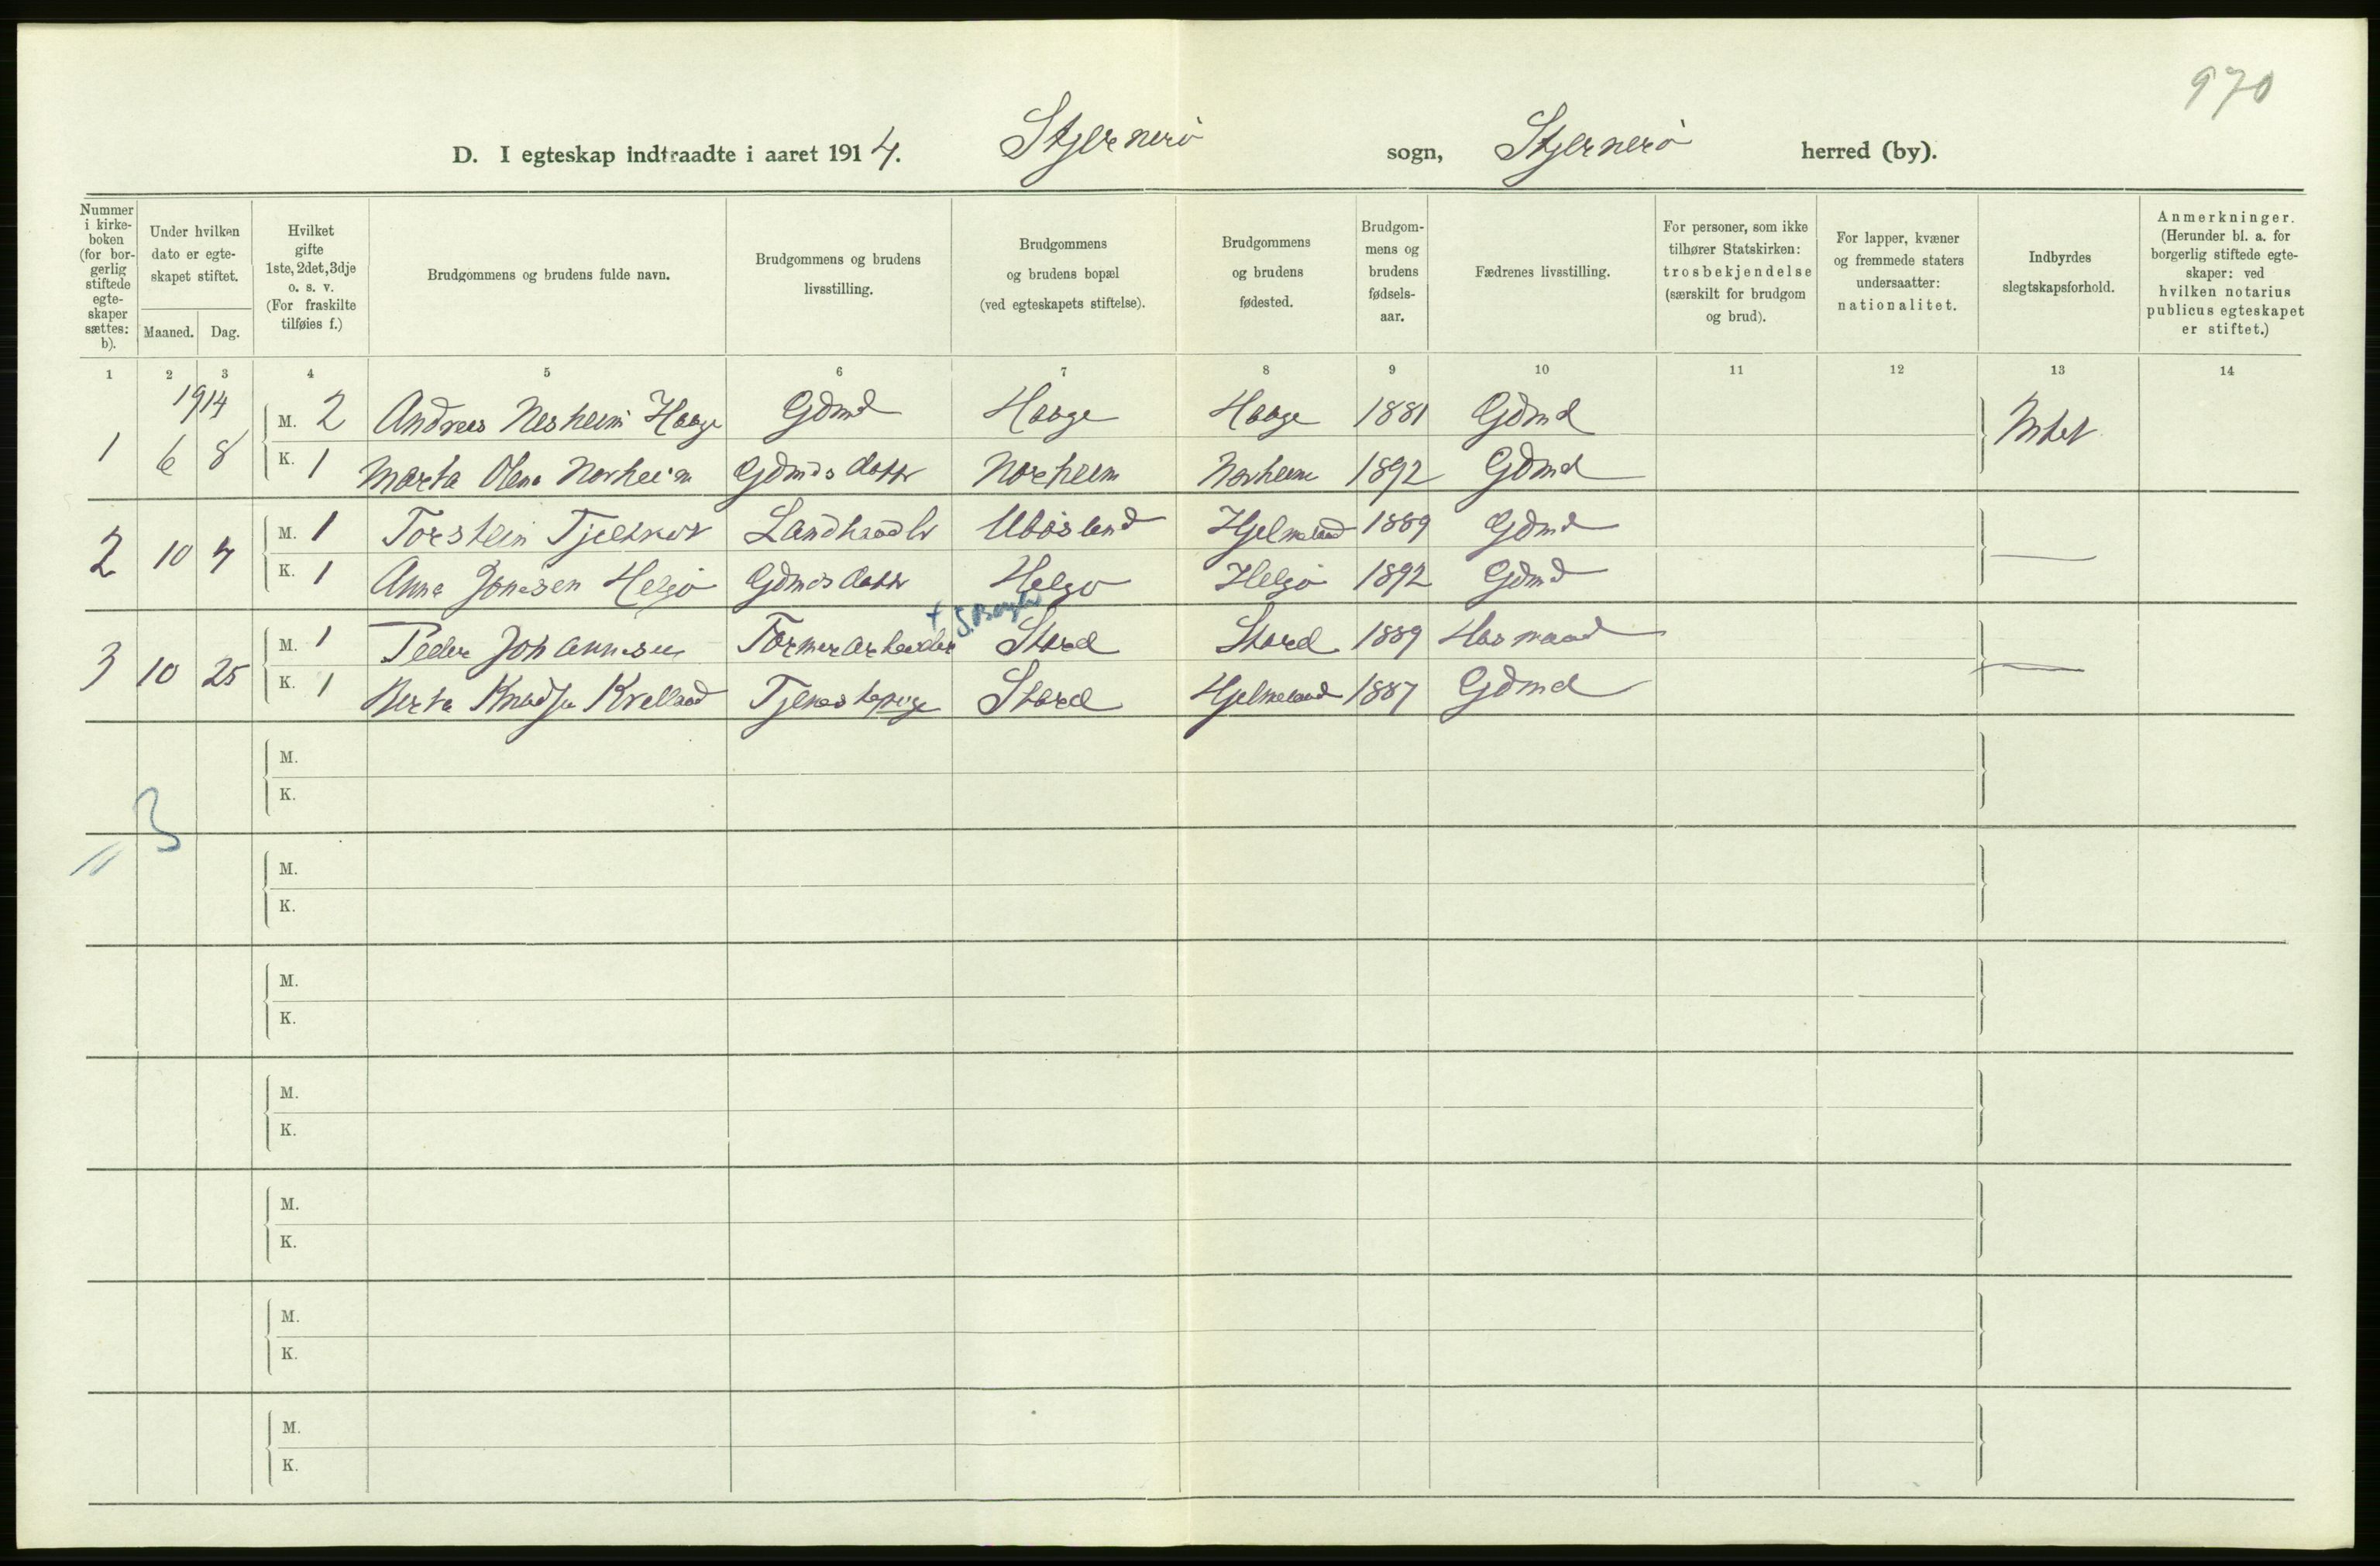 970
D. I egteskap indtraadte i aaret 1914. Stjernerö sogn, Stjernerö herred (by).
Nummer i kirke-boken (for bor-gerlig stiftede egte-skaper sættes: b).
Under hvilken dato er egte-skapet stiftet.
Maaned. Dag.
Hvilket gifte 1ste, 2det, 3dje o. s. v. (For fraskilte tilføies f.)
Brudgommens og brudens fulde navn.
Brudgommens og brudens livsstilling.
Brudgommens og brudens bopæl (ved egteskapets stiftelse).
Brudgommens og brudens fødested.
Brudgom-mens og brudens fødsels-aar.
Fædrenes livsstilling.
For personer, som ikke tilhører Statskirken: trosbekjendelse (særskilt for brudgom og brud).
For lapper, kvæner og fremmede staters undersaatter: nationalitet.
Indbyrdes slegtskapsforhold.
Anmerkninger. (Herunder bl. a. for borgerlig stiftede egte-skaper: ved hvilken notarius publicus egteskapet er stiftet.)
1 2 3 4 5 6 7 8 9 10 11 12 13 14
1914
1 6 8 M. 2 Andreas Nesheim Haage Gdmd Haage Haage 1881 Gdmd Intet
K. 1 Marta Olena Norheim Gdmds datr Norheim Norheim 1892 Gdmd
2 10 4 M. 1 Torstein Landhandlr Hjelmeland 1889 Gdmd —
K. 1 Anna Jonasen Helgö Gdmds datr Helgö Helgö 1892 Gdmd
3 10 25 M. 1 Peder Johannesen Tormerarbeider Stord Stord 1889 Husmand —
K. 1 Berta Knudsen Tjenestepige Stord Hjelmeland 1887 Gdmd
M.
K.
3
M.
K.
M.
K.
M.
K.
M.
K.
M.
K.
M.
K.